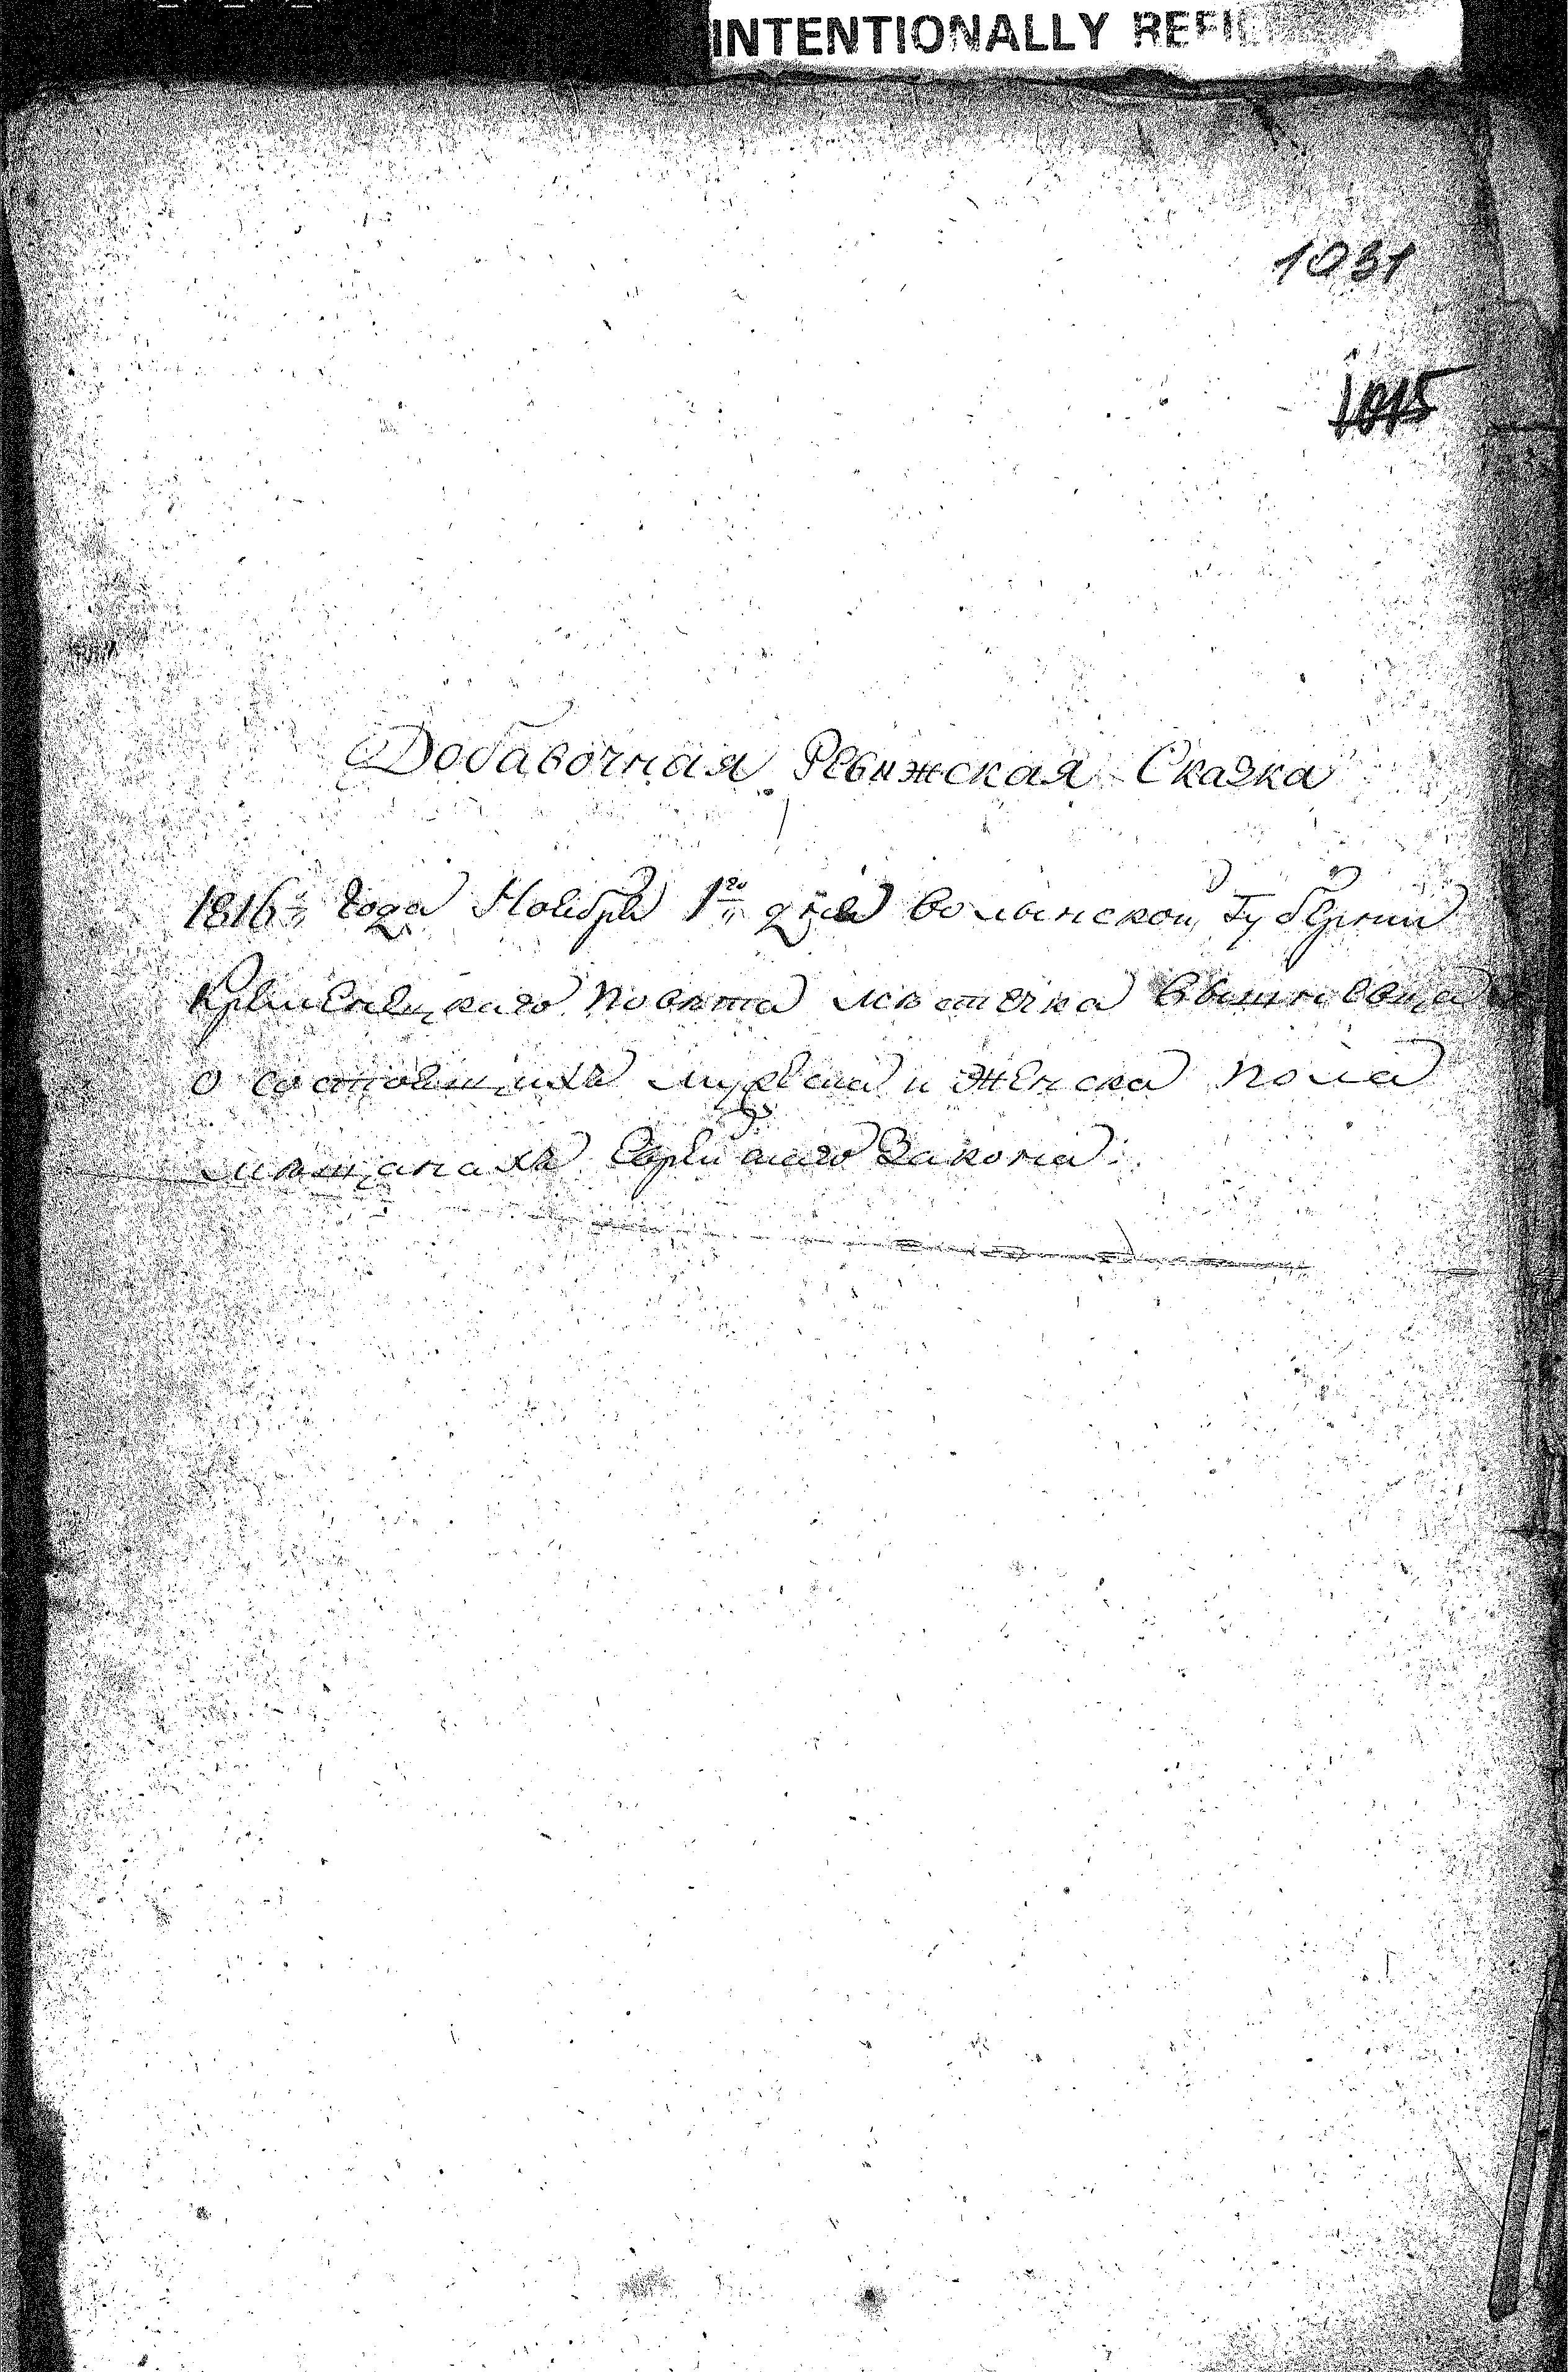 INTENTIONALLY REFIL
1031
1015
Добавочная Ревижская Сказка
1816го года Ноября 1го дня Волынской Губернии
Кременецкаго Повѣта мѣстечка Вышневца
о состоящихъ мужеска и Женска пола
мѣщанахъ Еврейскаго Закона: